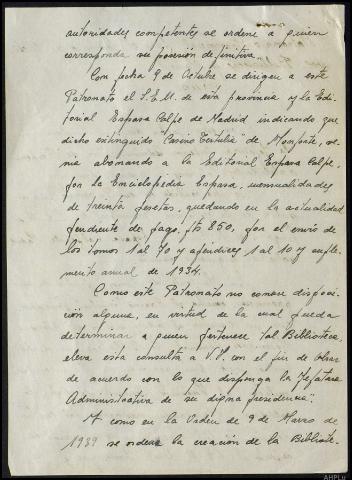 autoridades competentes se ordene a quien
corresponda su posesión definitiva.
Con fecha 9 de Octubre se dirigen a este
Patronato el S.E.M. de esta provincia y la Edi-
torial Espasa Calpe de Madrid indicando que
dicho extinguido "Casino Tertulia" de Monforte, ve-
nia abonando a la Editorial Espasa Calpe,
por la Enciclopedia Espasa, mensualidades
de treinta pesetas, quedando en la actualidad
pendiente de pago, pts 850, por el envio de
los tomos 1 al 70 y apéndices 1 al 10 y suple-
mento anual de 1934.
Como este Patronato no conoce disposi-
ción alguna, en virtud de la cual pueda
determinar a quien pertenece tal Biblioteca,
eleva esta consulta a V.I. con el fin de obrar
de acuerdo con lo que disponga la Jefatura
Administrativa de su digna presidencia".
Y como en la Orden de 9 de Marzo de
1939 se ordena la creación de la Bibliote-
AHPLu